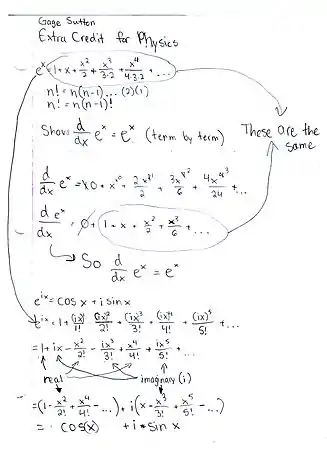 Gage Sutton
Extra Credit for Physics
e^x = 1 + x + x²/2 + x³/3·2 + x⁴/4·3·2 + ...
n! = n(n-1)...(2)(1)
n! = n(n-1)!
Show d/dx e^x = e^x (term by term)
These are the same
d/dx e^x = 0 + x⁰ + 2x¹/2 + 3x²/6 + 4x³/24 + ...
d e^x/dx = 0 + 1 + x + x²/2 + x³/6 + ...
So d/dx e^x = e^x
e^ix = cos x + i sin x
e^ix = 1 + (ix)/1! + (ix)²/2! + (ix)³/3! + (ix)⁴/4! + (ix)⁵/5! + ...
= 1 + ix - x²/2! - ix³/3! + x⁴/4! + ix⁵/5! + ...
real imaginary (i)
= (1 - x²/2! + x⁴/4! - ...) + i(x - x³/3! + x⁵/5! - ...)
= cos(x) + i * sin x